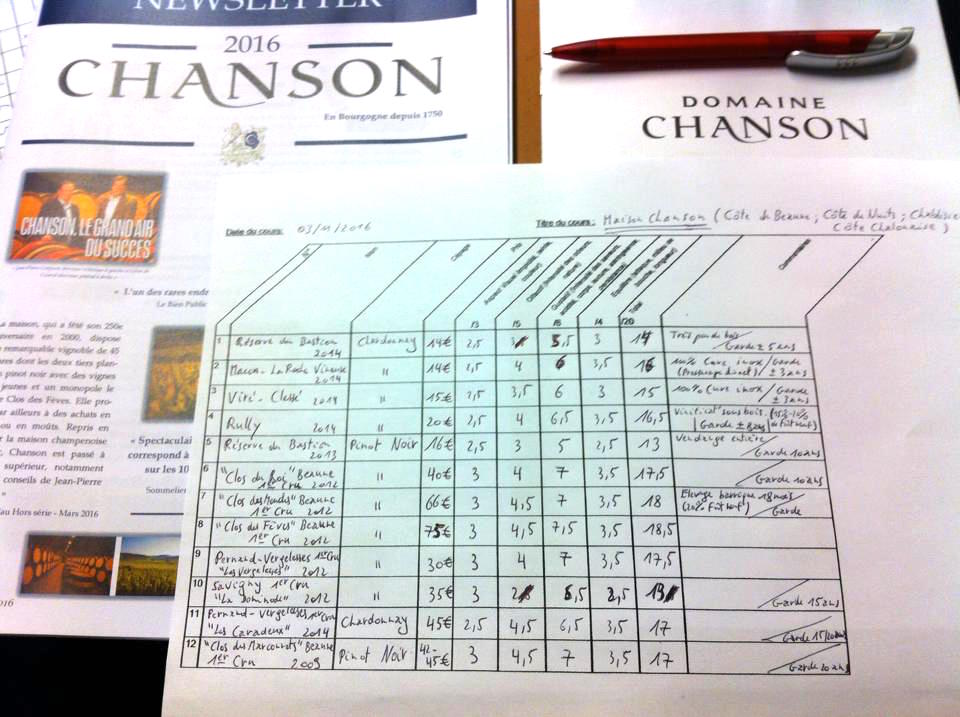 NEWSLETTER
2016
CHANSON
En Bourgogne depuis 1750
CHANSON, LE GRAND AIR
DU SUCCÈS
« L'un des rares endr
Le Bien Public
a maison, qui a fêté son 250e
versaire en 2000, dispose
remarquable vignoble de 45
res dont les deux tiers plan-
pinot noir avec des vignes
jeunes et un monopole le
Clos des Fèves. Elle pro-
ar ailleurs à des achats en
ou en moûts. Repris en
r la maison champenoise
r, Chanson est passé à
supérieur, notamment
conseils de Jean-Pierre
»
au Hors série - Mars 2016
« Spectacul
correspond à
sur les 10
Sommelier
016
DOMAINE
CHANSON
Date du cours: 03/11/2016
Titre du cours: Maison Chanson (Côte de Beaune ; Côte de Nuits ;
Côte Chalonnaise)
N°
Cépage
Prix
Total
Commentaires
/3 /5 /8 /4 /20
1 Réserve du Bastion 2014 Chardonnay 14€ 2,5 3 14 Très peu de bois Garde ± 5 ans
2 Macon - La Roche Vineuse 2014 " 14€ 2,5 4 6 3,5 16 100% Cuve inox / Garde (Pressurage direct) ± 3 ans
3 Viré - Clessé 2014 " 15€ 2,5 3,5 6 3 15 100% Cuve inox / Garde ± 3 ans
4 Rully 2014 " 20€ 2,5 4 6,5 3,5 16,5 sous bois. Garde
5 Réserve du Bastion 2013 Pinot Noir 16€ 3 3 5 2,5 13 Vendange entière Garde 10 ans
6 "Clos du Roi" Beaune 1er Cru 2012 " 40€ 3 4 7 3,5 17,5 Garde 10 ans
7 "Clos des Mouches" Beaune 1er Cru 2012 " 66€ 3 4,5 7 3,5 18 Elevage barrique 18 mois Garde
8 "Clos des Fèves" Beaune 1er Cru 2012 " 75€ 3 4,5 7,5 3,5 18,5
9 Pernand-Vergelesses 1er Cru "Les Vergelesses" 2012 " 30€ 3 4 7 3,5 17,5
10 Savigny 1er Cru "La Dominode" 2012 " 35€ 3 2,5 Garde 15 ans
11 Pernand-Vergelesses 1er Cru "Les Caradeux" 2014 Chardonnay 45€ 2,5 4,5 6,5 3,5 17 Garde 15/20 ans
12 "Clos des Marconnets" Beaune 1er Cru 2009 Pinot Noir 42-45€ 3 4,5 7 3,5 17 Garde 20 ans